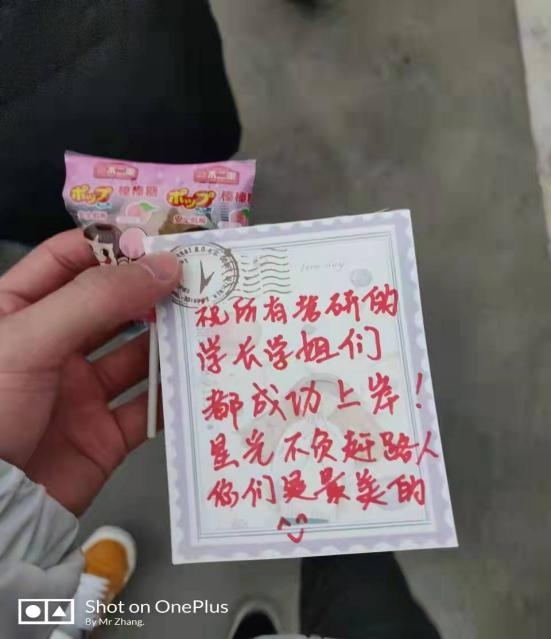 ポップ 棒棒糖
ポップ 棒棒糖
love day
祝所有考研的
学长学姐们
都成功上岸！
星光不负赶路人
你们是最美的
Shot on OnePlus
By Mr Zhang.